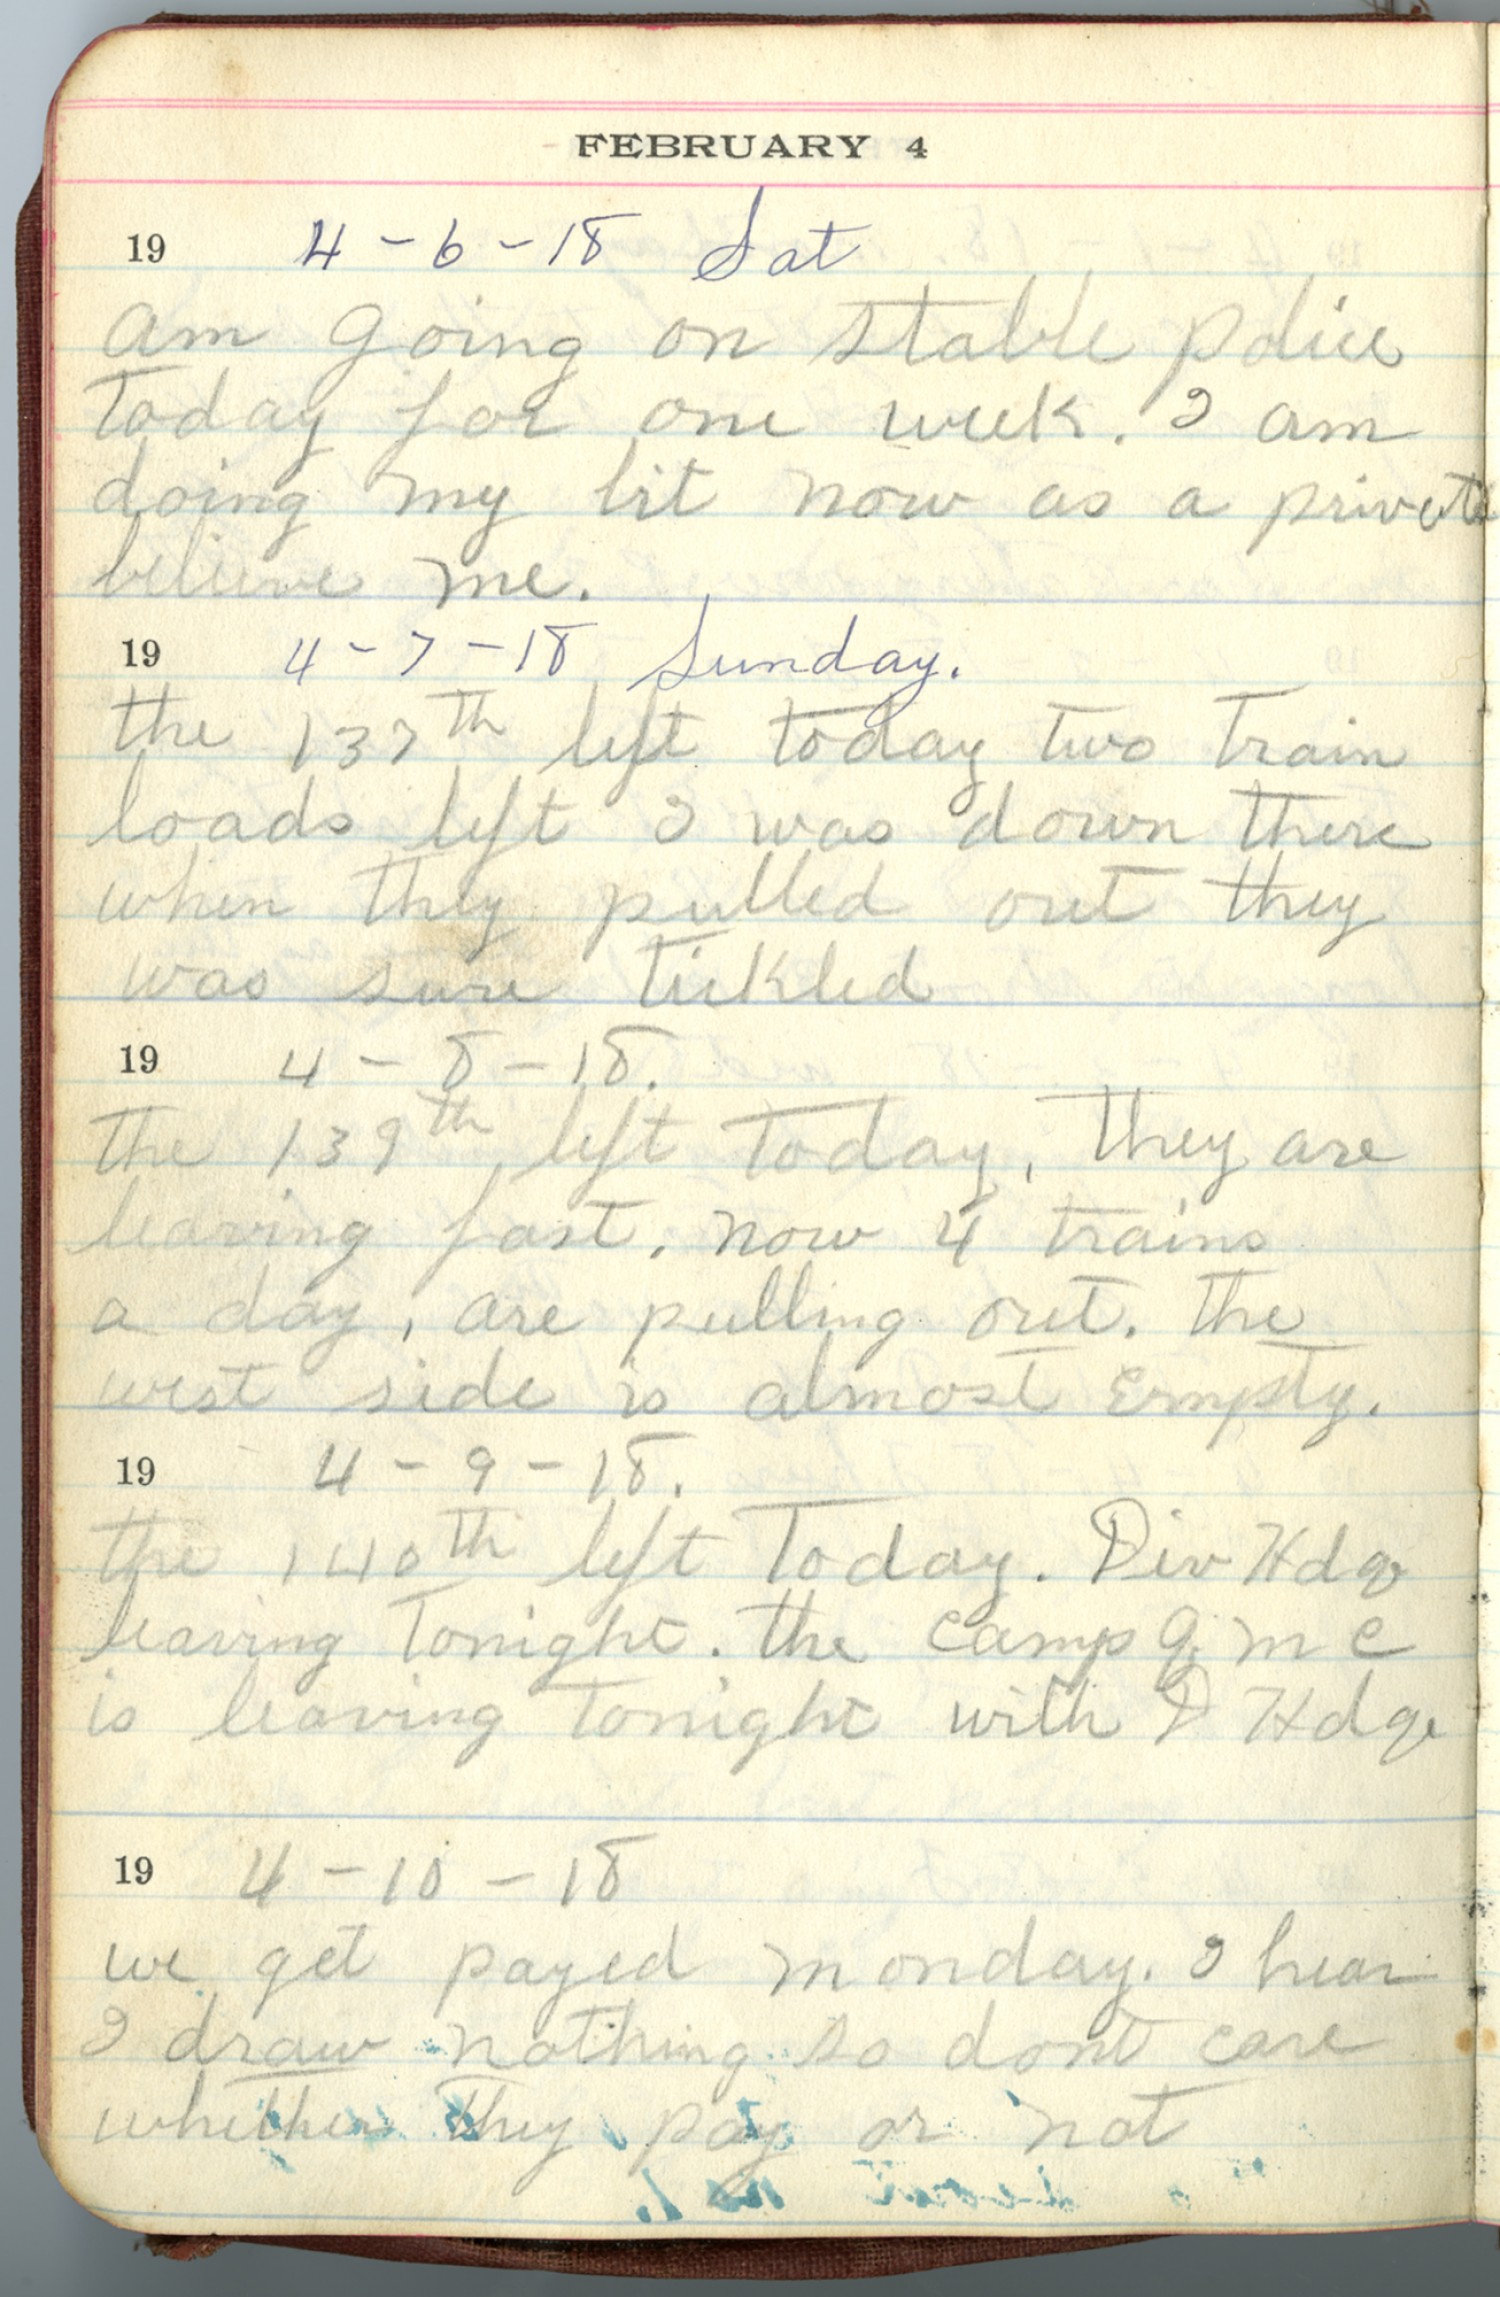 FEBRUARY 4
19 4-6-18 Sat
am going on stable police
today for one week. I am
doing my bit now as a private
believe me.
19 4-7-18 Sunday.
the 137th left today two train
loads left I was down there
when they pulled out they
was sure tickled
19 4-8-18.
the 139th left today, they are
leaving fast. now 4 trains
a day, are pulling out. the
west side is almost empty.
19 4-9-18.
the 140th left today. Div Hdq
leaving tonight. the camp Q M C
is leaving tonight with D Hdq.
19 4-10-18
we get payed monday. I hear
I draw nothing so dont care
whether they pay or not